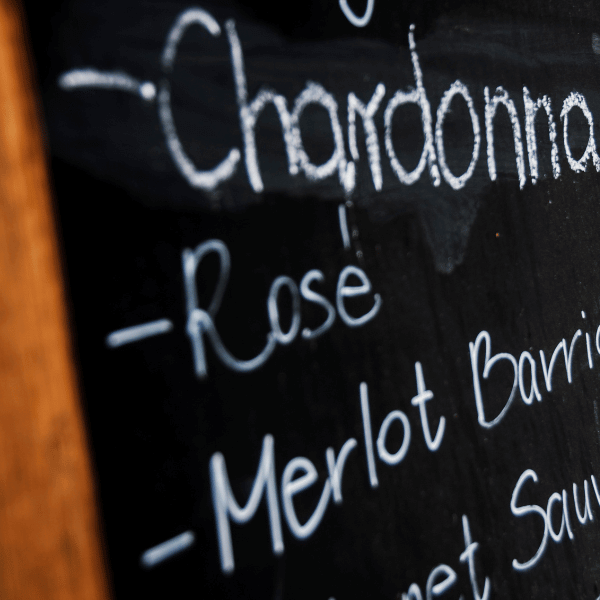 - Chardonna
- Rosé
- Merlot Barri
net Sauv